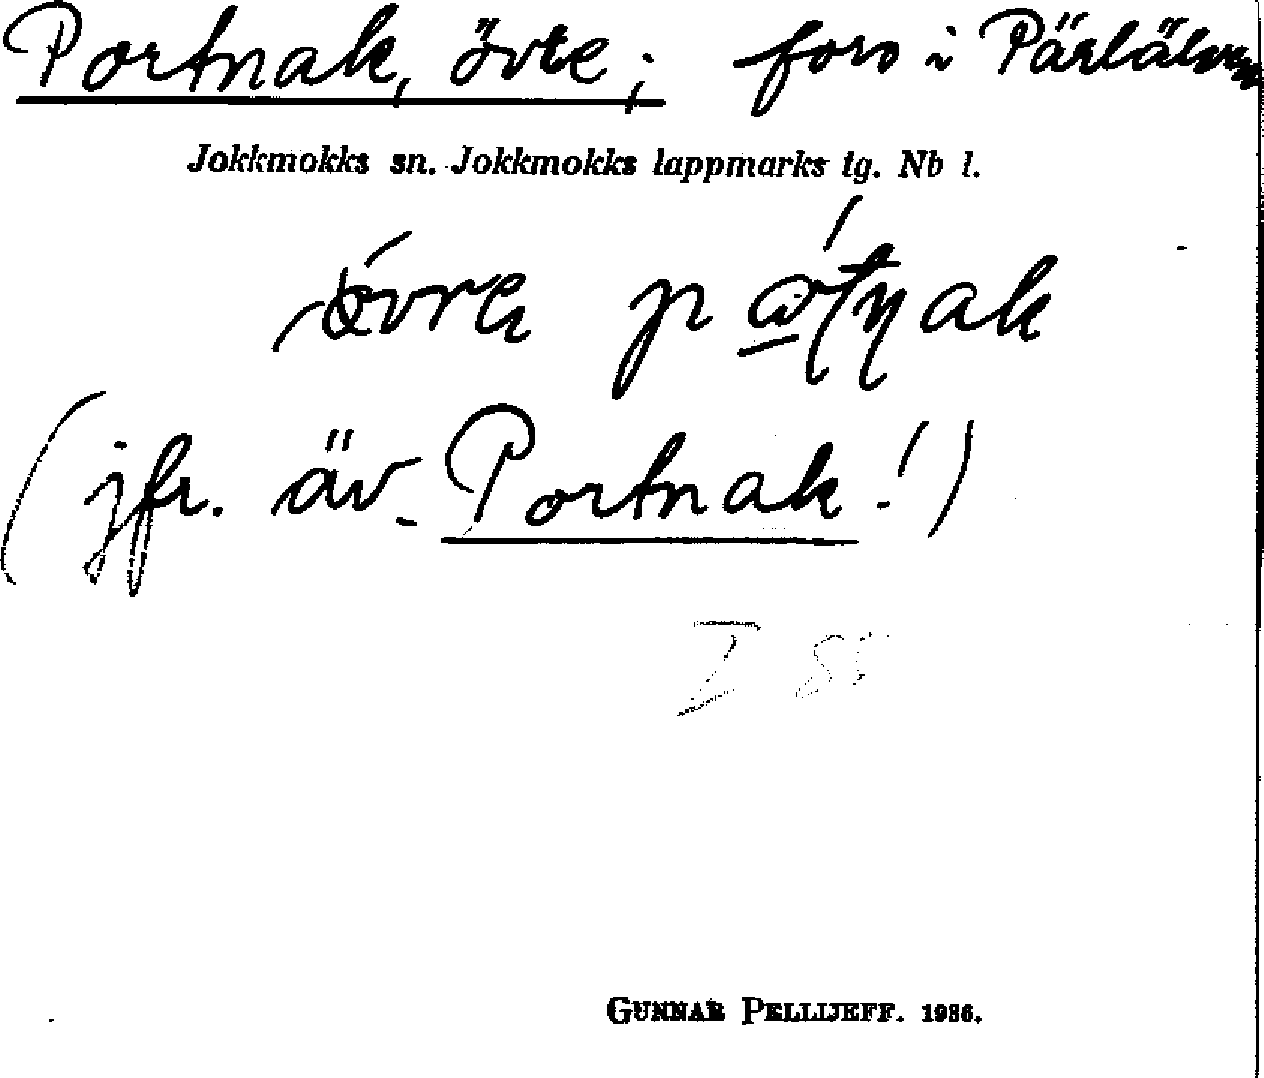 Portnak, övre; fors i Pärlälven
Jokkmokks sn. Jokkmokks lappmarks tg. Nb l.
(jfr. äv. Portnak!)
GUNNAR PELLIJEFF. 1936.